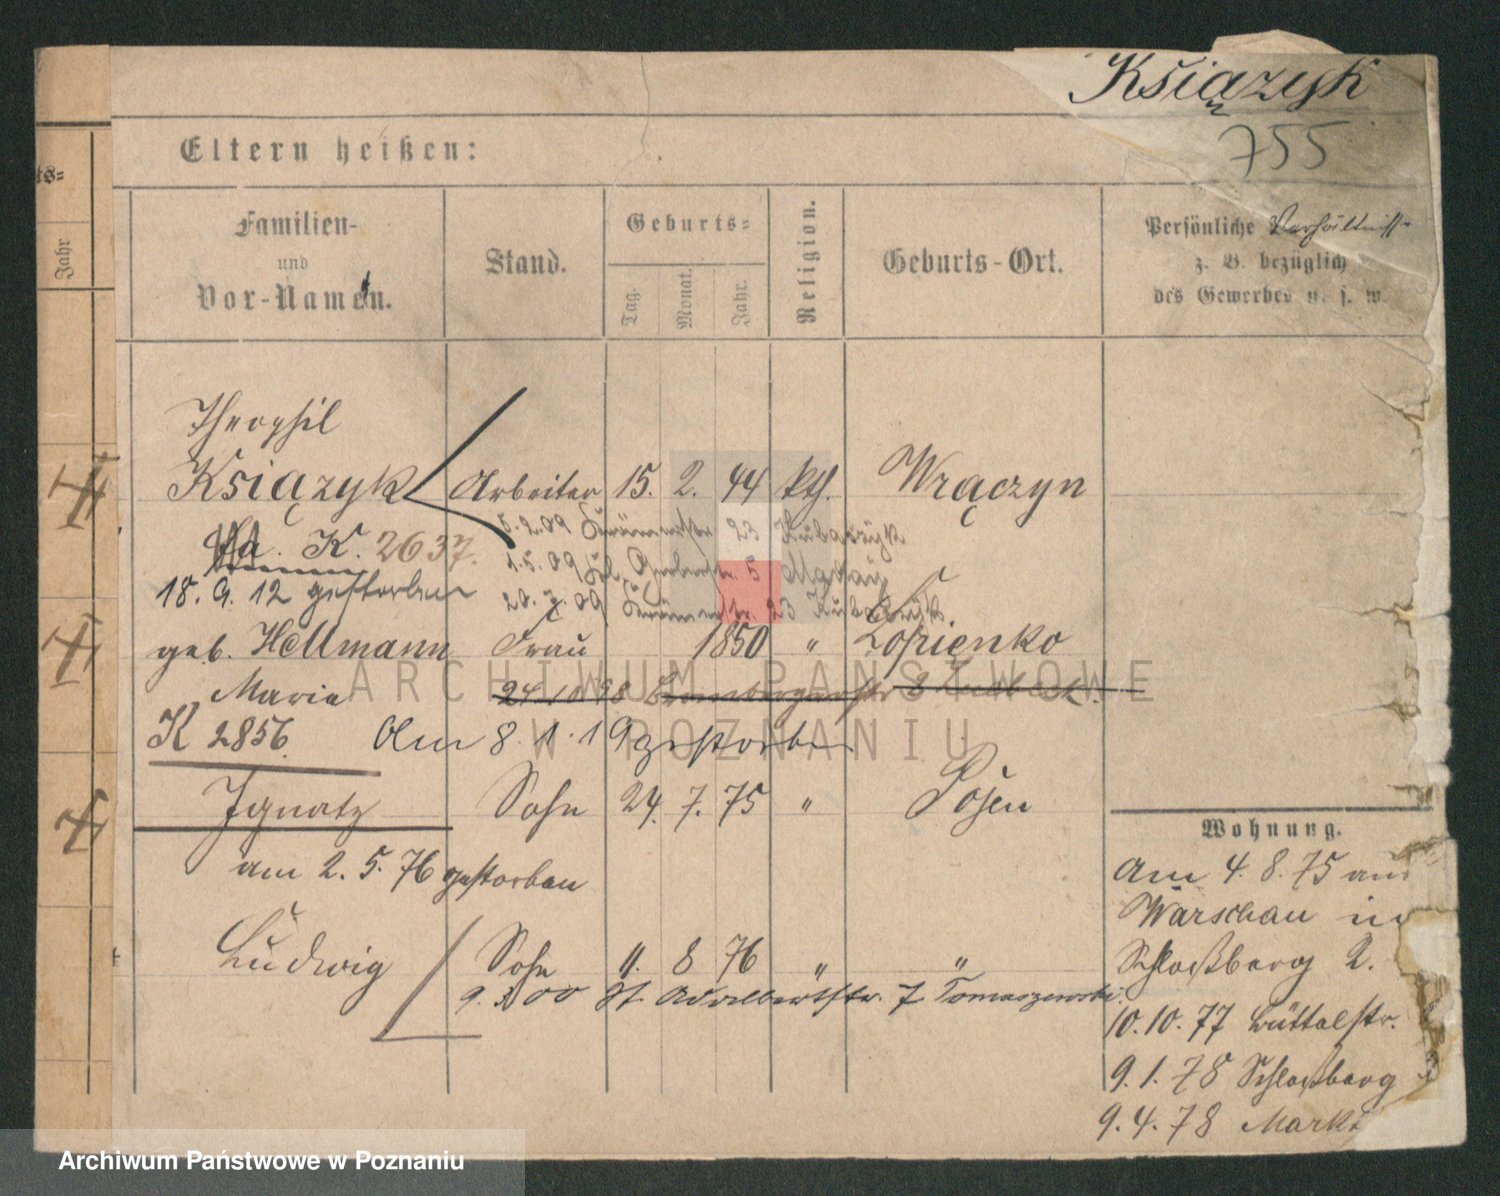 Książyk
755
Eltern heißen:
ts=
Jahr
Familien-
und
Vor-Namen.
Stand.
Geburts=
Tag.
Monat.
Jahr.
Religion.
Geburts-Ort.
Persönliche Verhältnisse
z. B. bezüglich
des Gewerbes u. s. w.
Theophil
Książyk Arbeiter 15. 2. 44 kth. Wrączyn
K. 2637.
5.2.09 23
1.5.09 5
18. 9. 12 gestorben
20.7.09 23
geb. Hellmann Frau 1850 " Łopienko
Maria 24 10 98 Brombergerstr 8
K 2856 Am 8. 1. 19 gestorben
Ignatz Sohn 24. 7. 75 " Posen
am 2. 5. 76 gestorben
Ludwig Sohn 11. 8 76 " "
9. 00 St. Adalbertstr. 7 Tomaszewski
Wohnung.
Am 4. 8. 75 aus
Warschau in
Schloßberg 2.
10. 10. 77 Büttelstr.
9. 1. 78 Schloßberg
9. 4. 78 Markt
ARCHIWUM PAŃSTWOWE
W POZNANIU
Archiwum Państwowe w Poznaniu